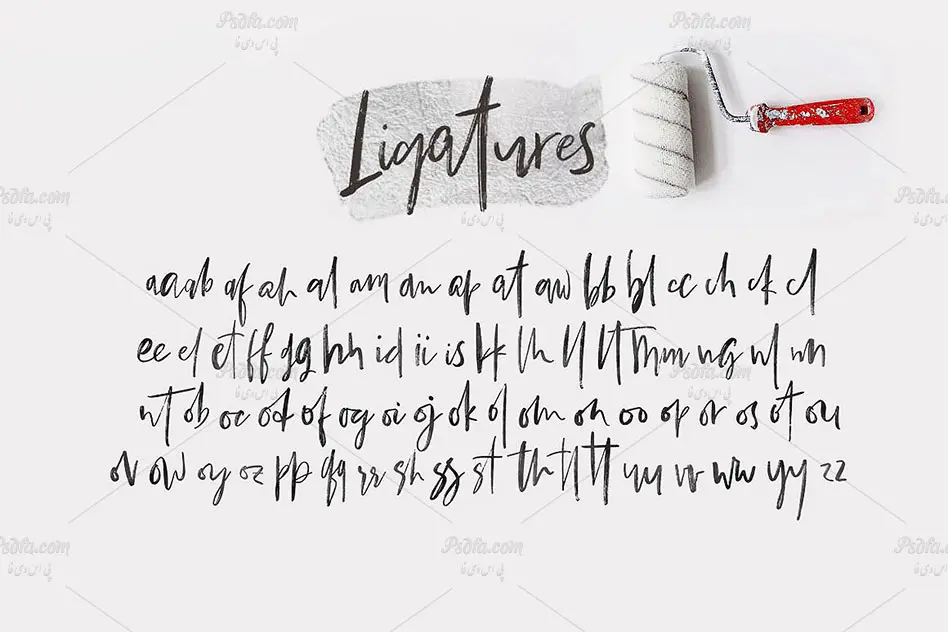 Psdfa.com
Ligatures
aa ab af ah al am an ap at aw bb bl cc ch ck cl
ee el et ff gg hh id ii is kk lh ll lt mm ng nl nn
nt ob oc od of og oi oj ok ol om on oo op or os ot ou
ov ow oy oz pp qq rr sh ss st th tl tt uu vv ww yy zz